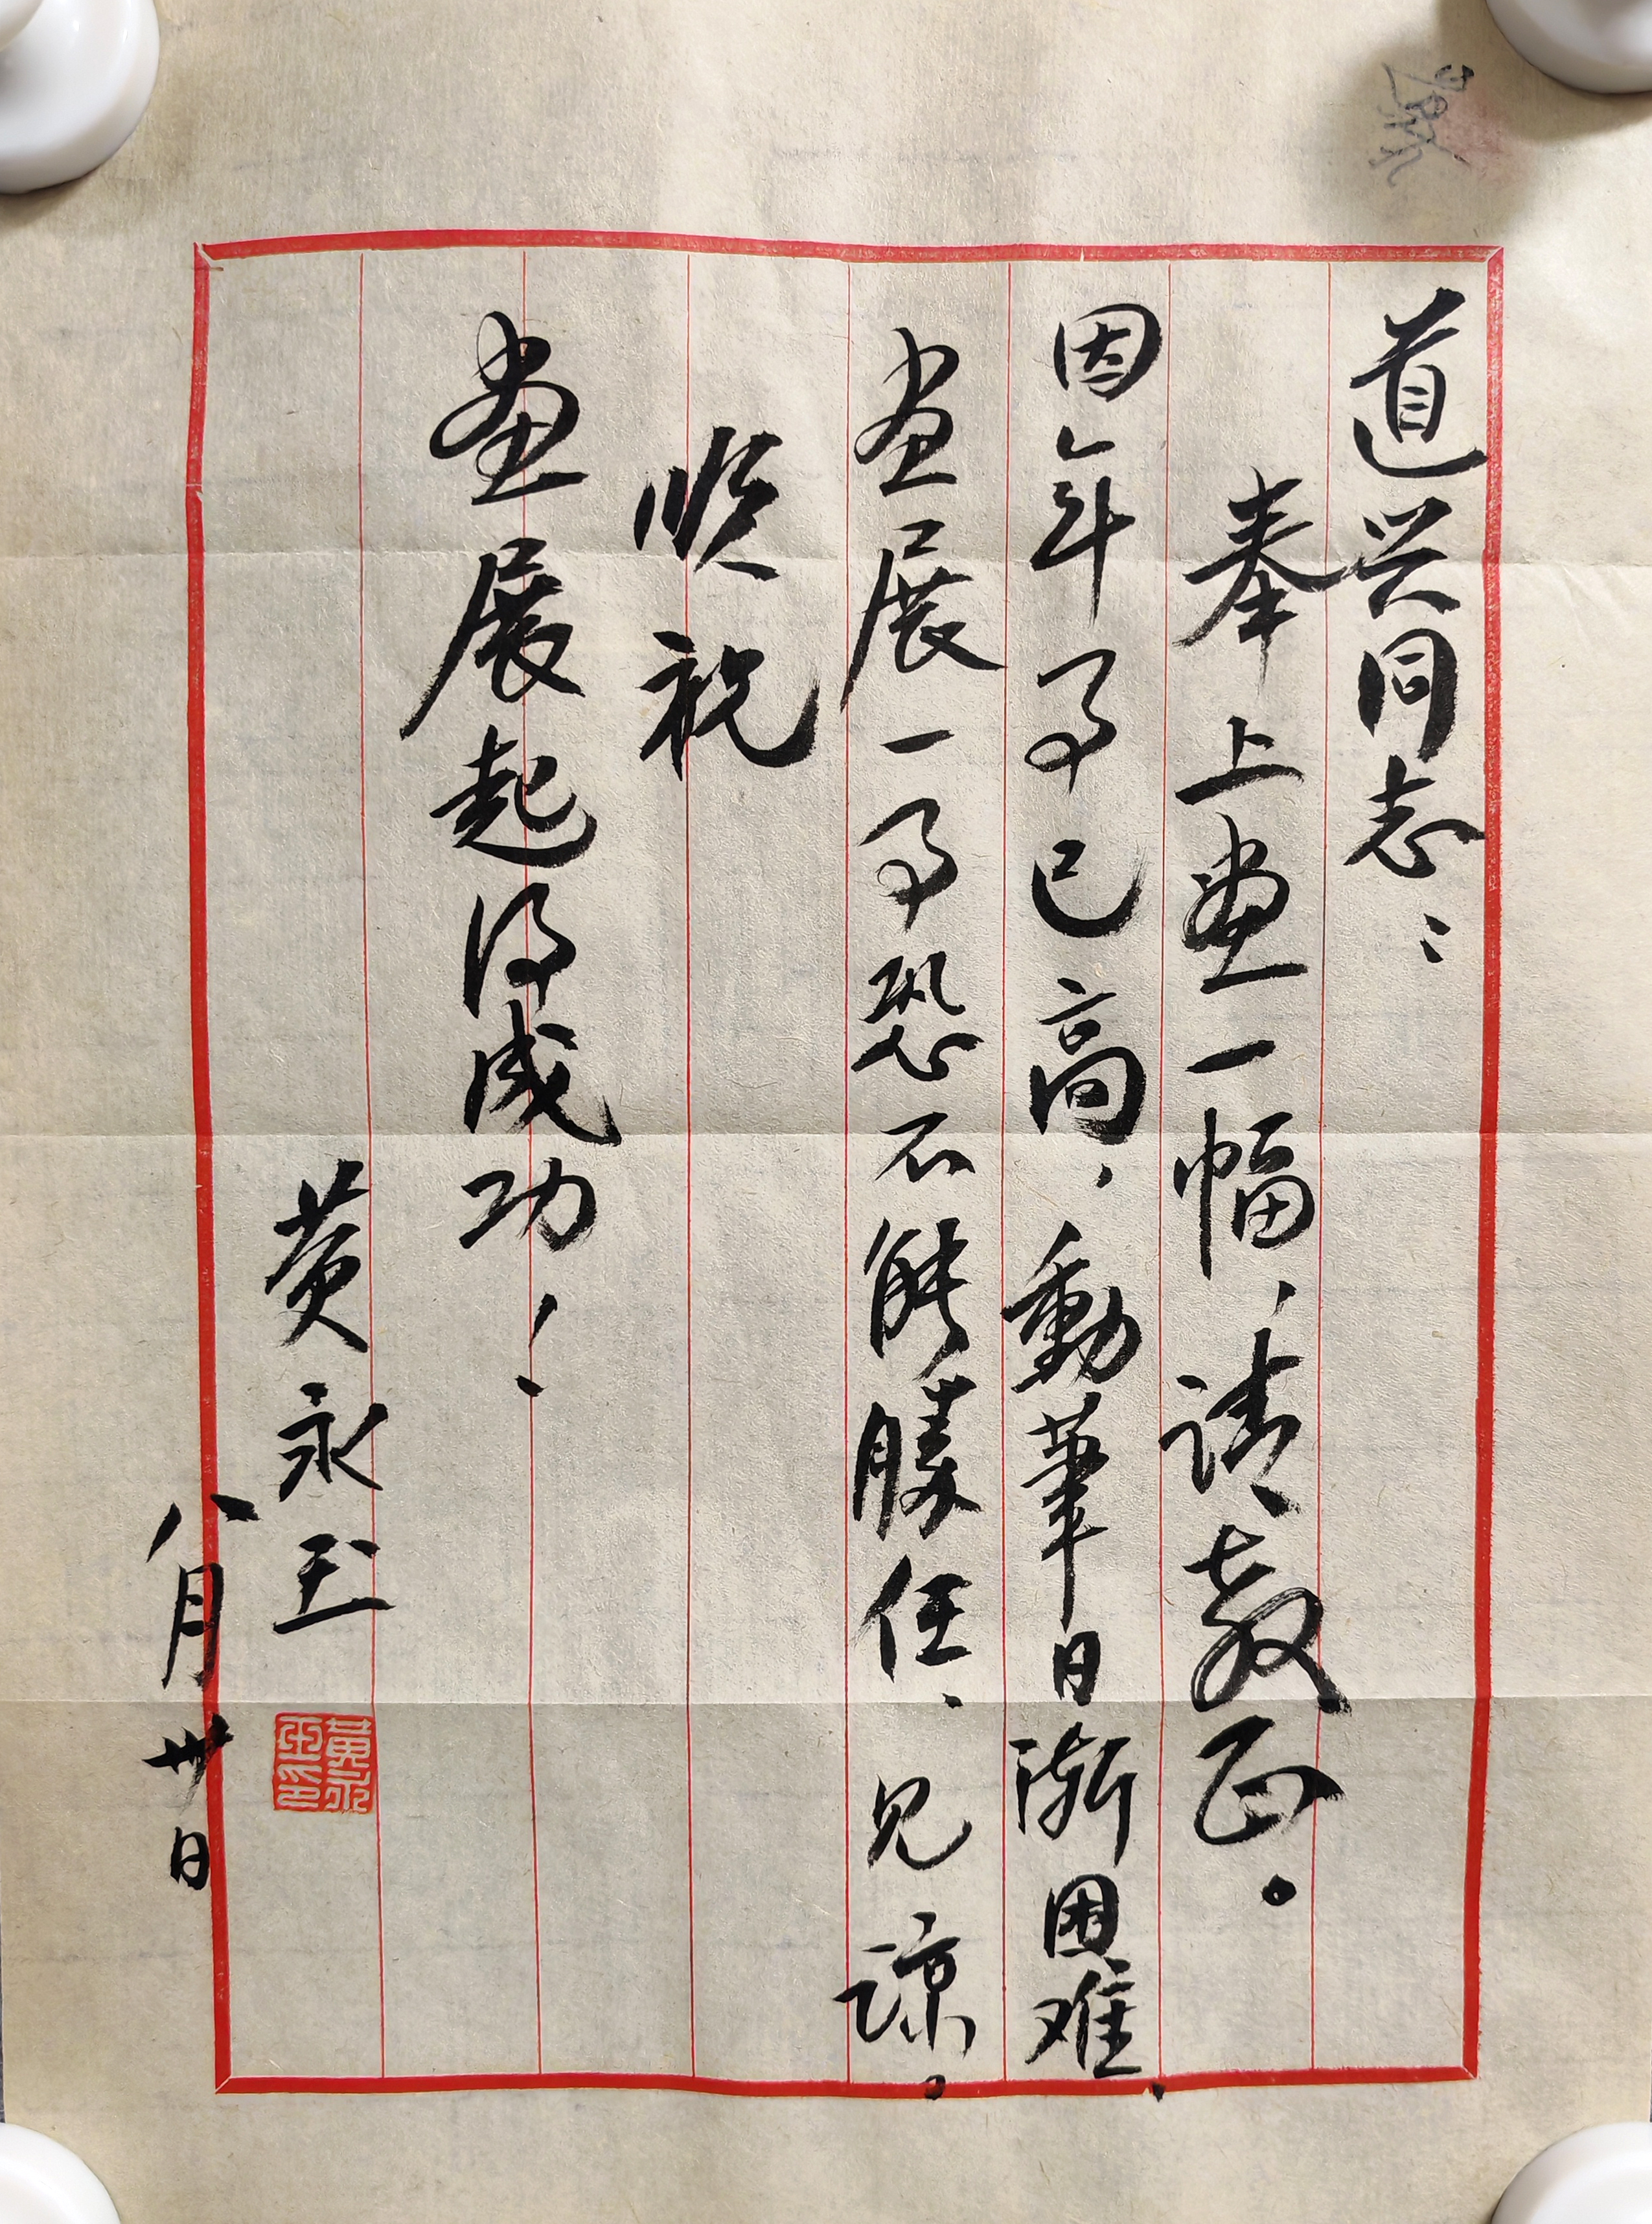 道兴同志：
奉上畫一幅，请教正。
因年事已高，動筆日渐困难，
畫展一事恐不能勝任，见谅。
顺祝
畫展起得成功！
黄永玉
八月卅日
黃永玉印